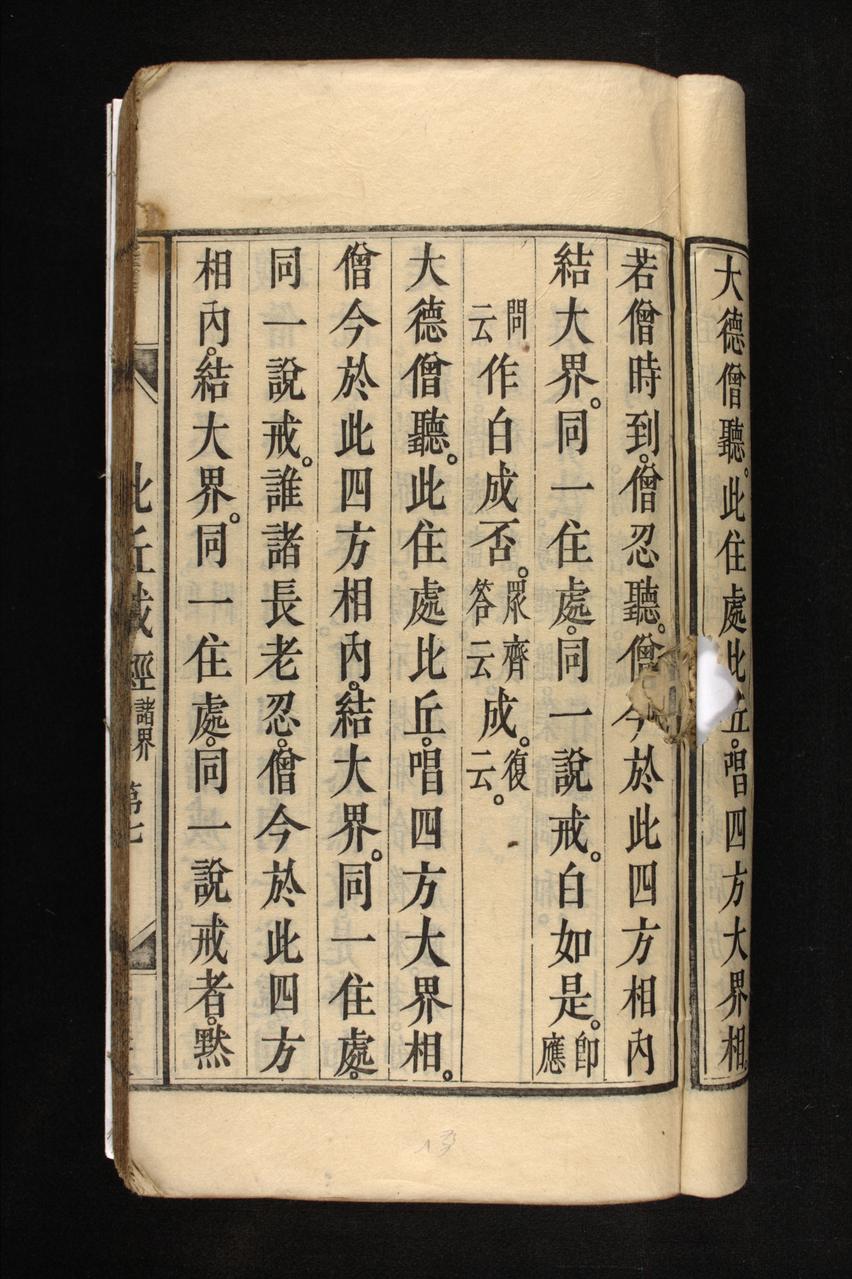 大德僧聽。此住處比丘。唱四方大界相。
若僧時到。僧忍聽。僧今於此四方相內
結大界。同一住處。同一說戒。白如是。即應
問云作白成否。眾答齊云成。復云。
大德僧聽。此住處比丘。唱四方大界相。
僧今於此四方相內。結大界。同一住處。
同一說戒。誰諸長老忍。僧今於此四方
相內。結大界。同一住處。同一說戒者。默
比丘 經 諸界 第七